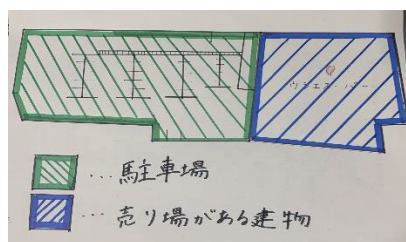 …駐車場
…売り場がある建物